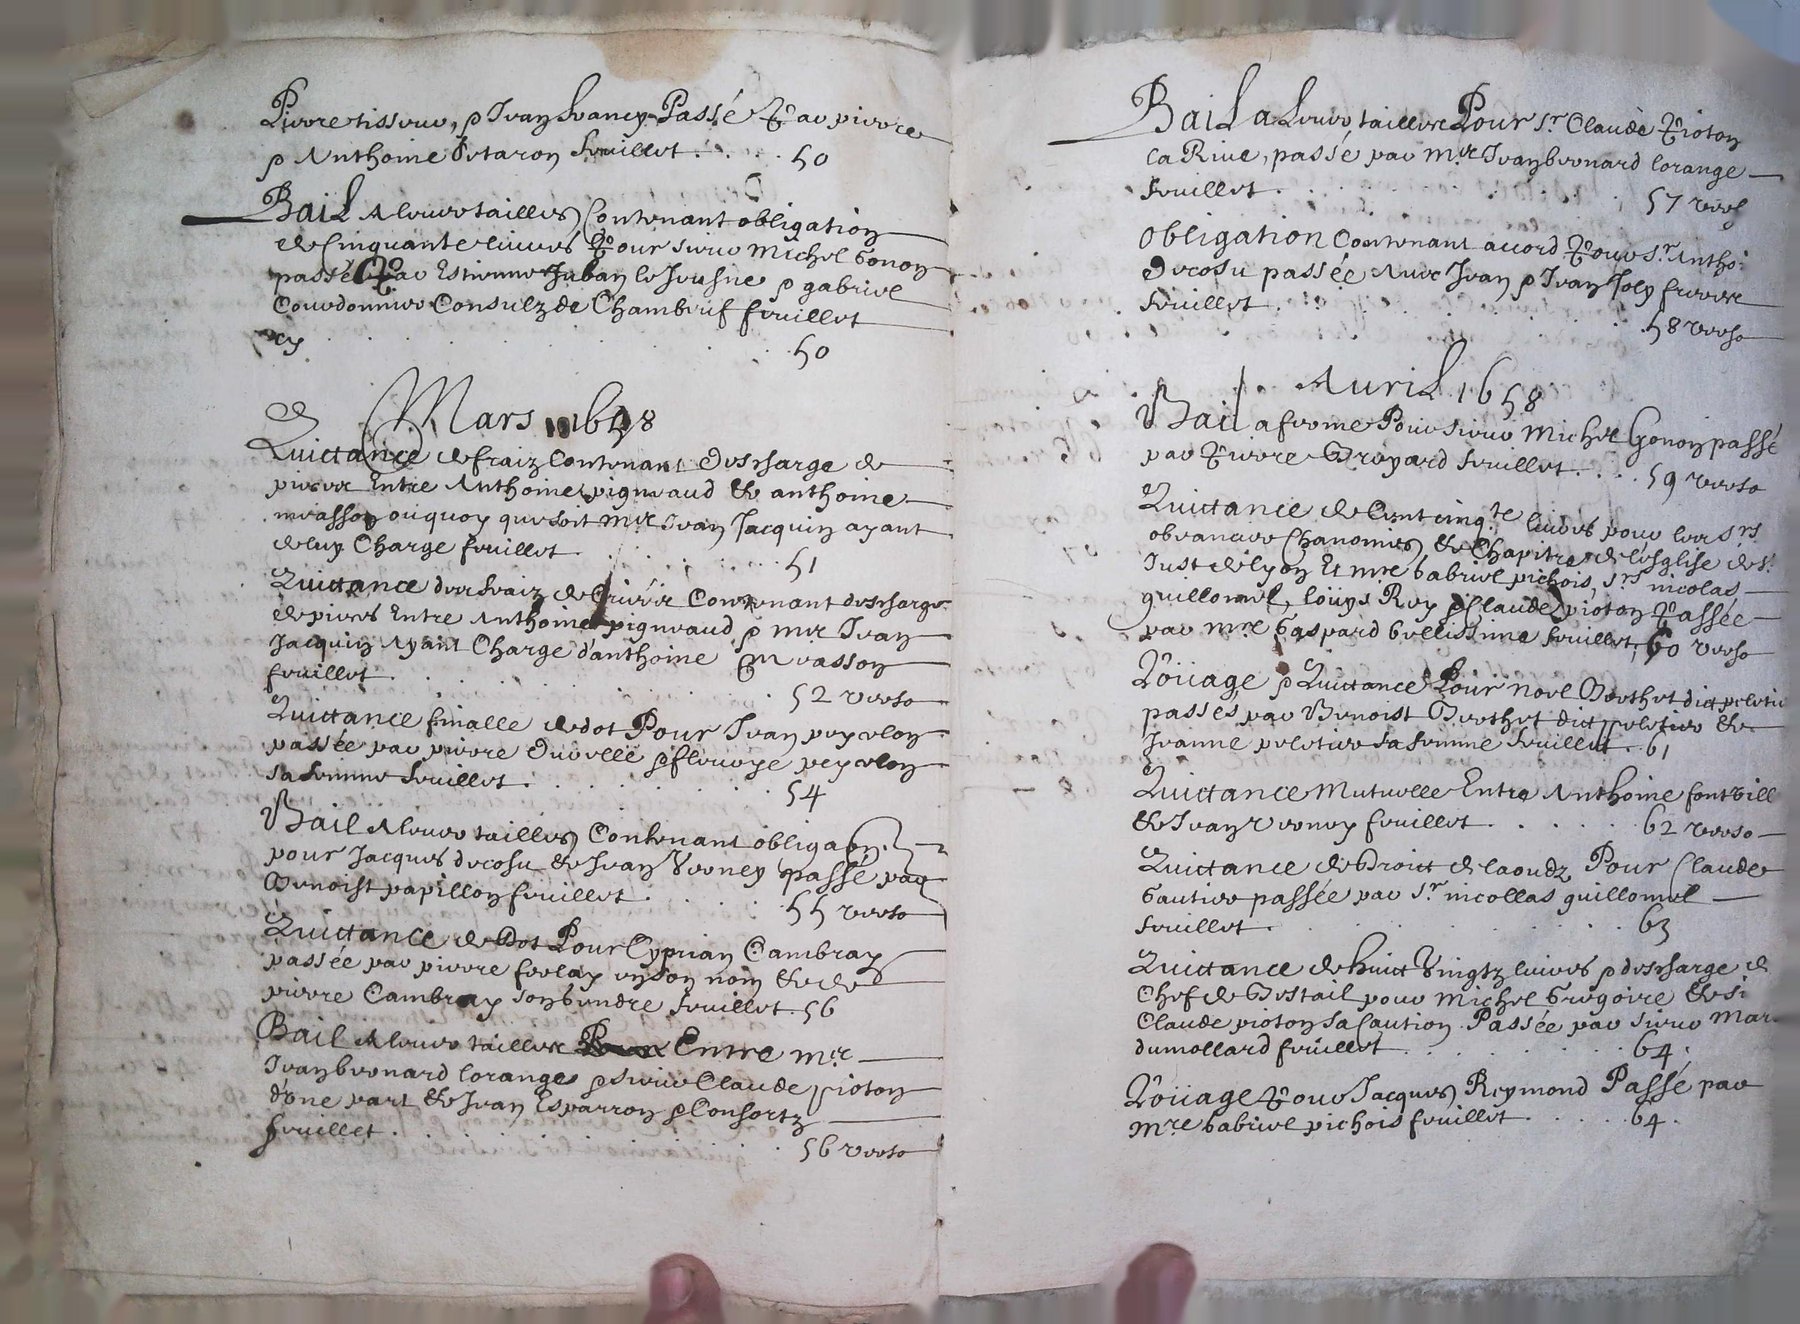 Pierre tisseur, & Jean france Passé Par pierre
& Anthoine Detaron feuillet . . . . . 50
Bail A leuer tailles Contenant obligation
de Cinquante liures Pour sieur Michel Gonon
passé Par Estienne Juban le Jeusne & gabriel
Courdonnier Consulz de Chambeuf feuillet
cy . . . . . . . . 50
Mars 1658
Quictance de fraiz Contenant Descharge de
pieces Entre Anthoine pigneaud & anthoine
meassoy ou quoy que soit mre Jean Jacquin ayant
de luy Charge feuillet . . . . . 51
Quittance des fraiz de Criées Contenant descharge
de pieces Entre Anthoine pigneaud & mre Jean
Jacquin Ayant Charge d'anthoine Measson
feuillet . . . . . . . . 52 verso
Quittance finalle de dot Pour Jean peycelon
passée par pierre Duelle & fleurye peycelon
sa femme feuillet . . . . . . . 54
Bail A leuer tailles Contenant obligaon.
pour Jacques decosu & Jean Verney passé par
Benoist papillon feuillet . . . . . 55 verso
Quittance de Dot Pour Cyprian Cambray
passée par pierre ferlay en son nom & de
pierre Cambray son gendre feuillet . 56
Bail A leuer tailles Entre mre
Jean bernard lorange & sieur Claude pioton
d'one part & Jean Esparron & Consortz
feuillet . . . . . . . . 56 verso
Bail A Leuer tailles Pour sr Claude Pioton
La Riue, passé par mre Jean bernard lorange
feuillet . . . . . . . . 57 verso
Obligation Contenant acord Pour Sr. Antho:
Decosu passée Auec Jean & Jean Joly freres
feuillet . . . . . . . . 58 verso
Auril 1658
Bail a ferme Pour sieur Michel Gonon passé
par Pierre Gruyard feuillet . . . . 59 verso
Quictance de Cent cinq.te liures pour les srs.
obeancier Chanoines & Chapitre de l'esglise de st.
Just de lyon Et mre Gabriel pichois, srs nicolas
guillomel, louys Rey & Claude pioton Passée
par mre Gaspard Bellissime feuillet, 60 verso
Loüage & Quittance Pour noel Berthet dict peletier
passés par Benoist Berthet dict peletier &
Jeanne peletier sa femme feuillet . 61
Quictance Mutuelle Entre Anthoine fontbill
& Jean Verney feuillet . . . . . . 62 verso
Quictance de Droict de laoudz Pour Claude
Gautier passée par sr. nicollas guillomel
feuillet . . . . . . . . 63
Quictance de huict Vingtz liures & descharge de
Chef de Bestail pour Michel Gregoire & sr
Claude pioton sa Caution Passée par sieur Mar
dumollard feuillet . . . . . . . 64 .
Loüage Pour Jacques Reymond Passé par
mre Gabriel pichois feuillet . . . . . 64 .